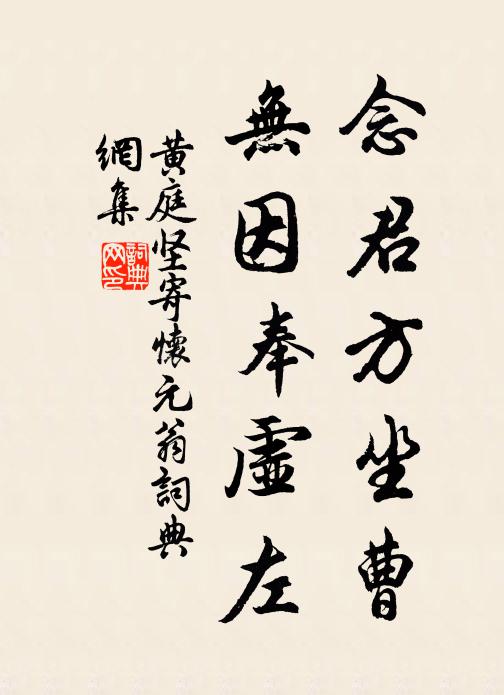 念君方坐曹
無因奉虛左
黄庭坚寄懷元翁詞典
網集
詞典
网印